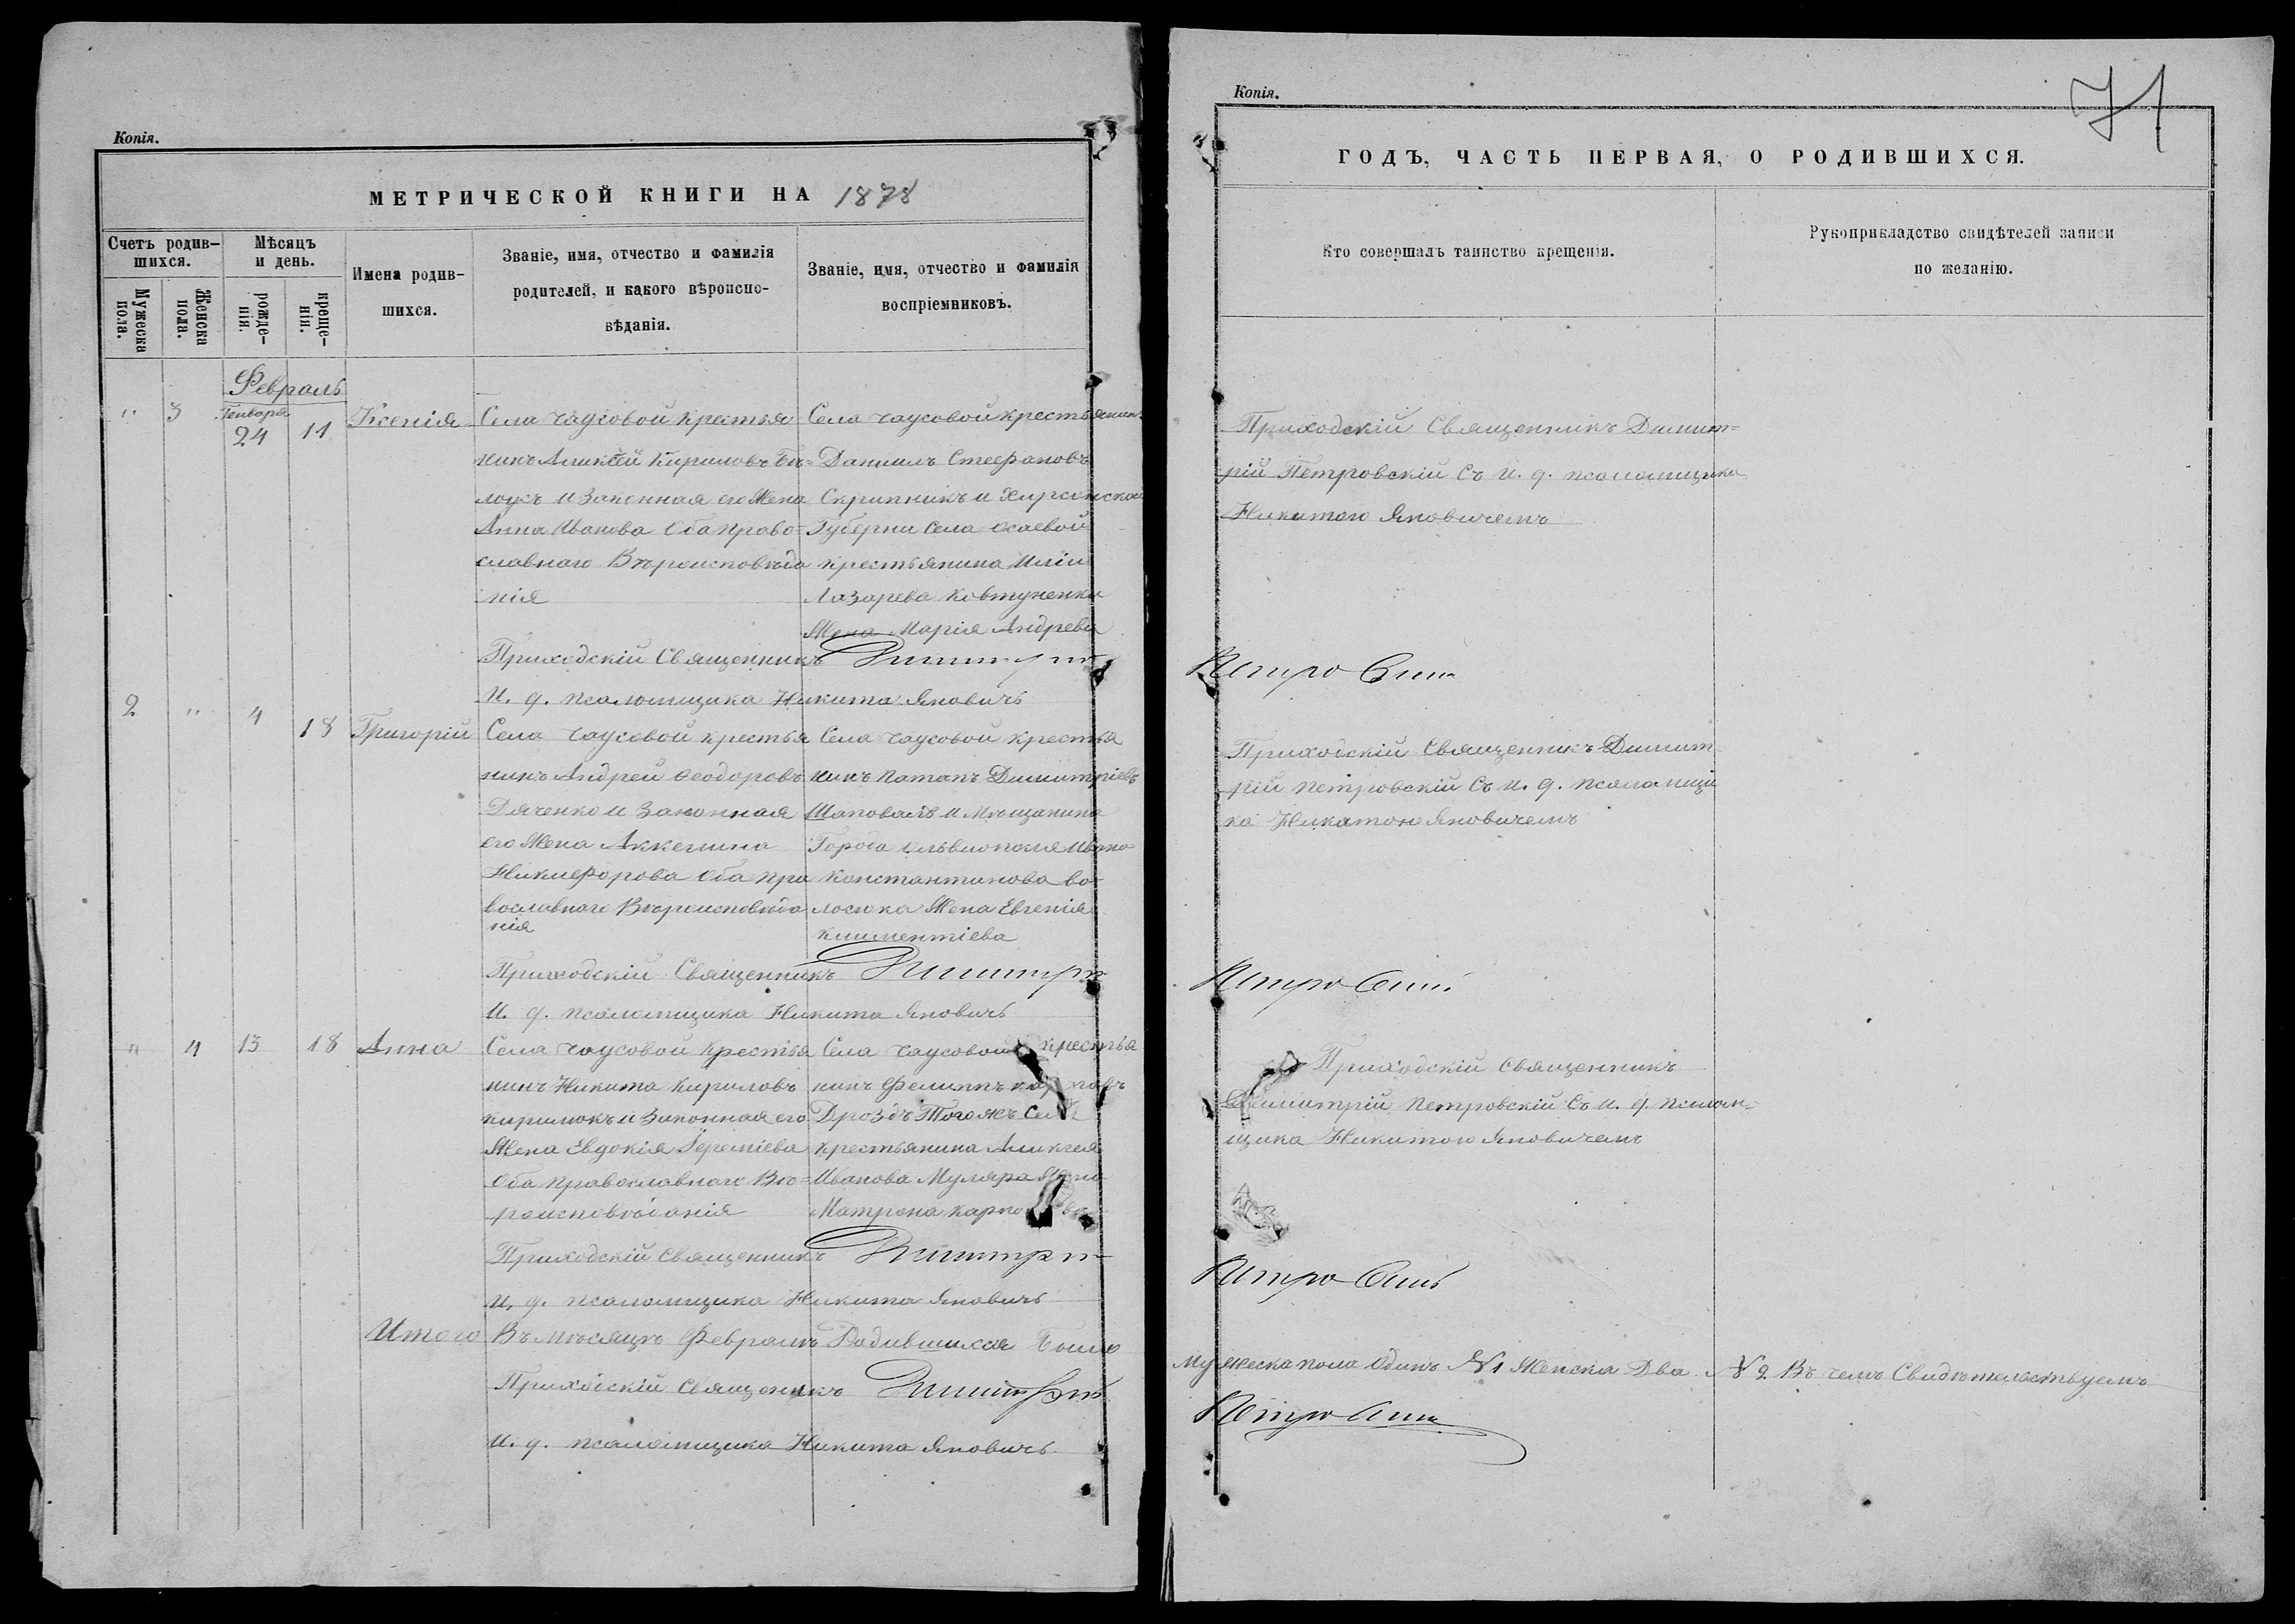 Копія.
МЕТРИЧЕСКОЙ КНИГИ НА 1878
Счетъ родив-
шихся.
Мужеска
пола.
Женска
пола.
Мѣсяцъ
и день.
рожде-
нія.
креще-
нія.
Имена родив-
шихся.
Званіе, имя, отчество и фамилія
родителей, и какого вѣроиспо-
вѣданія.
Званіе, имя, отчество и фамилія
воспріемниковъ.
Февраль
" 3 Генваря 24 11 Ксенія
Села Чаусовой крестья
нинъ Аликсѣй Кириловъ Бѣ-
лоусъ и Законная его Жена
Анна Иванова Оба право-
славнаго Вѣроисповѣда
нія
Села Чаусовой крестьянинъ
Даниилъ Стефановъ
Скрипникъ и Херсонской
Губерни Села Осаевой
крестьянина Иліи
Лазарева Ковтуненка
Жена Марія Андрева
Приходскій Священникъ Димитрій
И. д. псаломщика Никита Яновичъ
2 " 4 18 Григорій
Села Чаусовой крестья
нинъ Андрей Феодоровъ
Дяченко и Законная
его Жена Аккелина
Никифорова Оба пра
вославнаго Вѣроисповѣда
нія
Села Чаусовой крестья
нинъ Потапъ Димитріевъ
Шаповалъ и Мѣщанина
Города Ольвиополя Ивана
Константинова Во-
лосюка Жена Евгенія
Климентіева
Приходскій Священникъ Димитрій
И. д. псаломщика Никита Яновичъ
" 4 13 18 Анна
Села Чаусовой Крестья
нинъ Никита Кириловъ
Кирилюкъ и Законная его
Жена Евдокія Іереміева
Оба православнаго Вѣ-
роисповѣданія
Села Чаусовой крестья
нинъ Филиппъ
Дроздъ Тогожъ
крестьянина Аликсея
Иванова Муляра Жена
Матрона
Приходскій Священникъ Димитрій
И. д. псаломщика Никита Яновичъ
Итого Въ мѣсяцѣ Февралѣ Родившихся Было
Приходскій Священикъ Димитрій
И. д. псаломщика Никита Яновичъ
Копія.
71
ГОДЪ, ЧАСТЬ ПЕРВАЯ, О РОДИВШИХСЯ.
Кто совершалъ таинство крещенія.
Рукоприкладство свидѣтелей записи
по желанію.
Приходскій Священникъ Димит-
рій Петровскій Съ И. д. псаломщика
Никитою Яновичемъ
Петровскій
Приходскій Священникъ Димит-
рій Петровскій Съ И. д. псаломщи
ка Никитою Яновичемъ
Петровскій
Приходскій Священникъ
Димитрій Петровскій Съ И. д. псалом-
щика Никитою Яновичемъ
Петровскій
Мужеска пола Одинъ №1 Женска Два №2 Въ чемъ Свидѣтельствуемъ
Петровскій